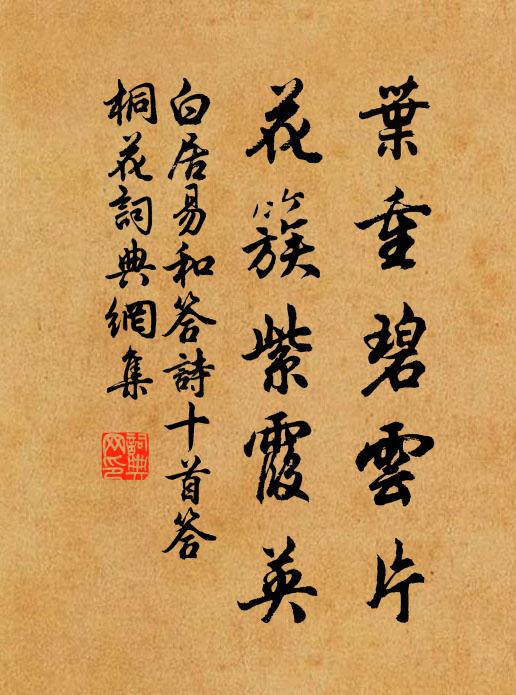 葉重碧雲片
花簇紫霞英
白居易和答詩十首答
桐花詞典網集
詞典
网印